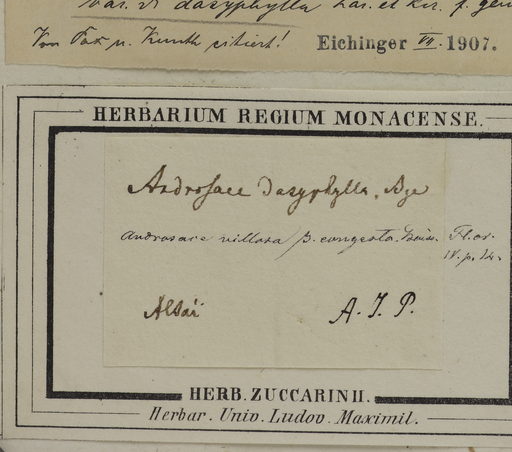 var. β dasyphylla Kar. et Kir. f. gen
Von Pax u. Knuth citiert! Eichinger VII. 1907.
HERBARIUM REGIUM MONACENSE.
Androsace dasyphylla. Bge
Androsace villosa β. congesta. Boiss. Fl. or.
IV. p. 14.
Altai A. J. P.
HERB. ZUCCARINII.
Herbar. Univ. Ludov. Maximil.